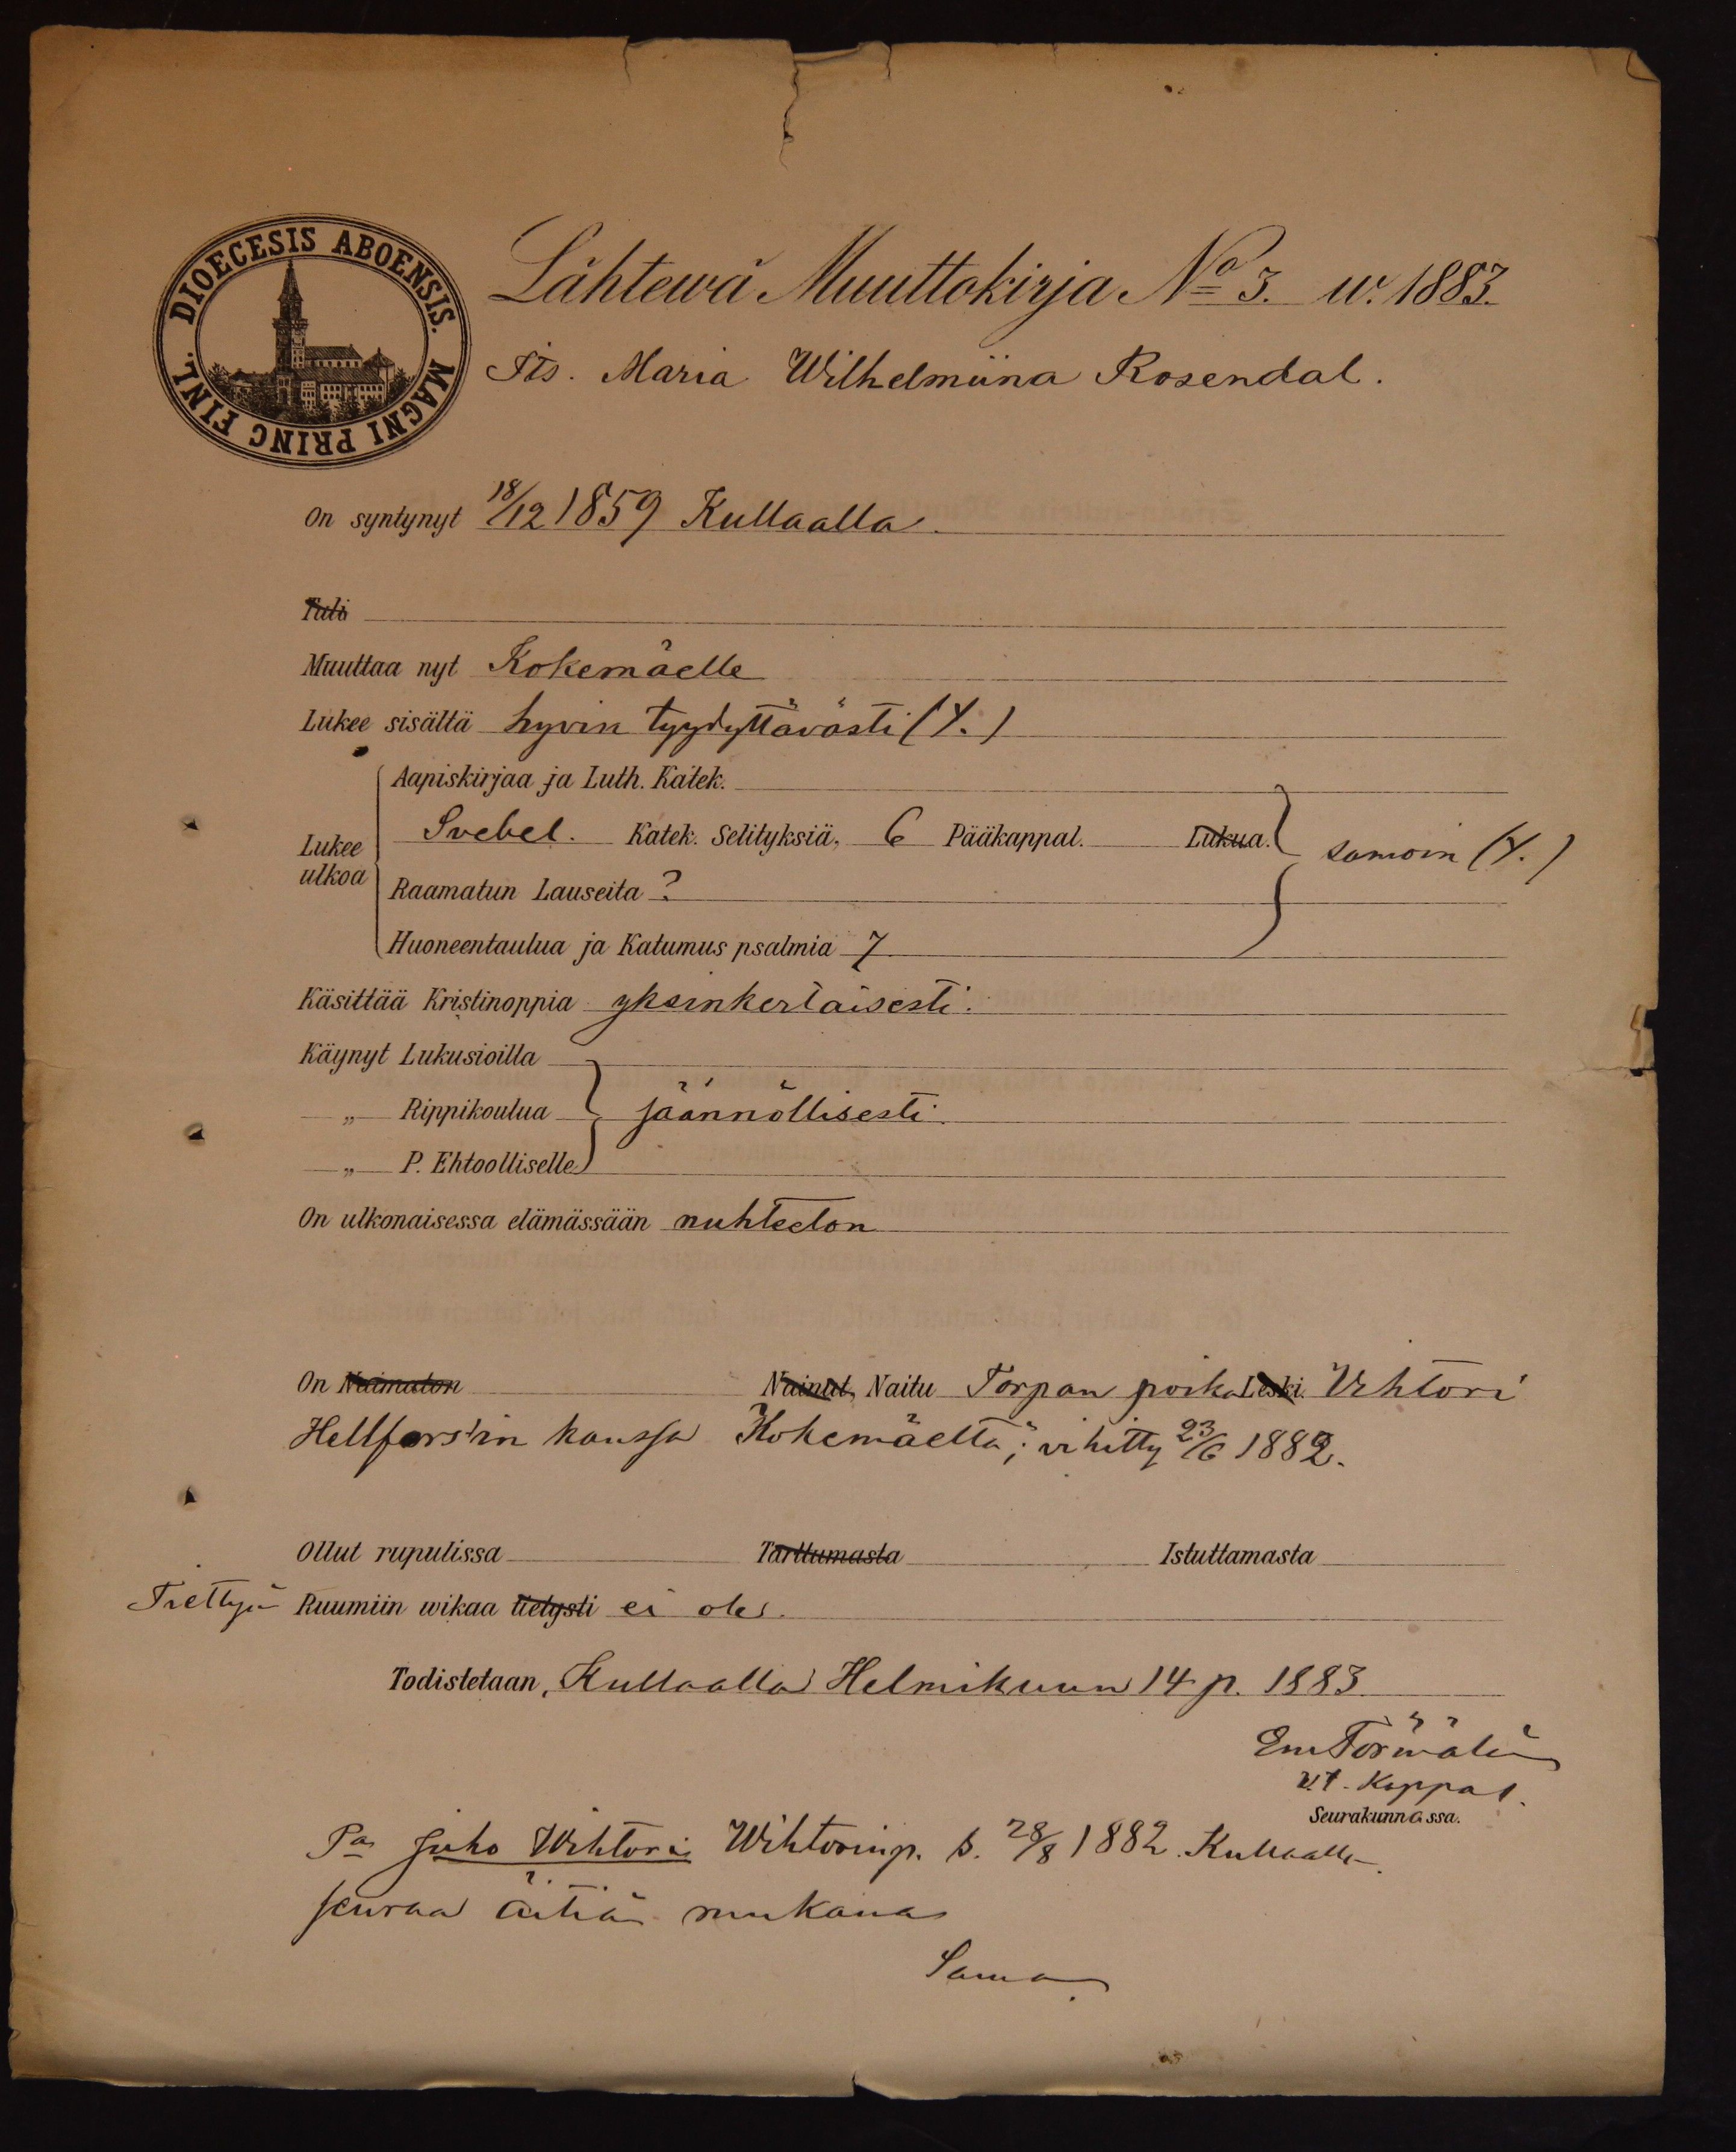 DIOECESIS ABOENSIS. MAGNI PRINC FINL.
Lähtewä Muuttokirja No 3. w. 1883.
Its. Maria Wilhelmiina Rosendal.
On syntynyt 18/12 1859 Kullaalla.
Tuli
Muuttaa nyt Kokemäelle
Lukee sisältä hyvin tyydyttävästi (Y.)
Aapiskirjaa ja Luth. Katek.
Lukee ulkoa
Svebel. Katek. Selityksiä, 6 Pääkappal. Lukua. samoin (Y.)
Raamatun Lauseita ?
Huoneentaulua ja Katumus psalmia 7
Käsittää Kristinoppia yksinkertaisesti.
Käynyt Lukusioilla
„ Rippikoulua säännöllisesti.
„ P. Ehtoolliselle
On ulkonaisessa elämässään nuhteeton
On Naimaton Nainut, Naitu Torpan poika Leski. Vihtori
Hellfors'in kanssa Kokemäeltä; vihitty 23/6 1882.
Ollut rupulissa Tarttumasta Istuttamasta
Tiettyä Ruumiin wikaa tietysti ei ole.
Todistetaan, Kullaalla Helmikuun 14 p. 1883
Em Törmälä
V.t. Kappal.
Seurakunnassa.
Pa Juho Wihtori Wihtorinp. s. 28/8 1882. Kullaalla.
seuraa äitiä mukana
Sama.